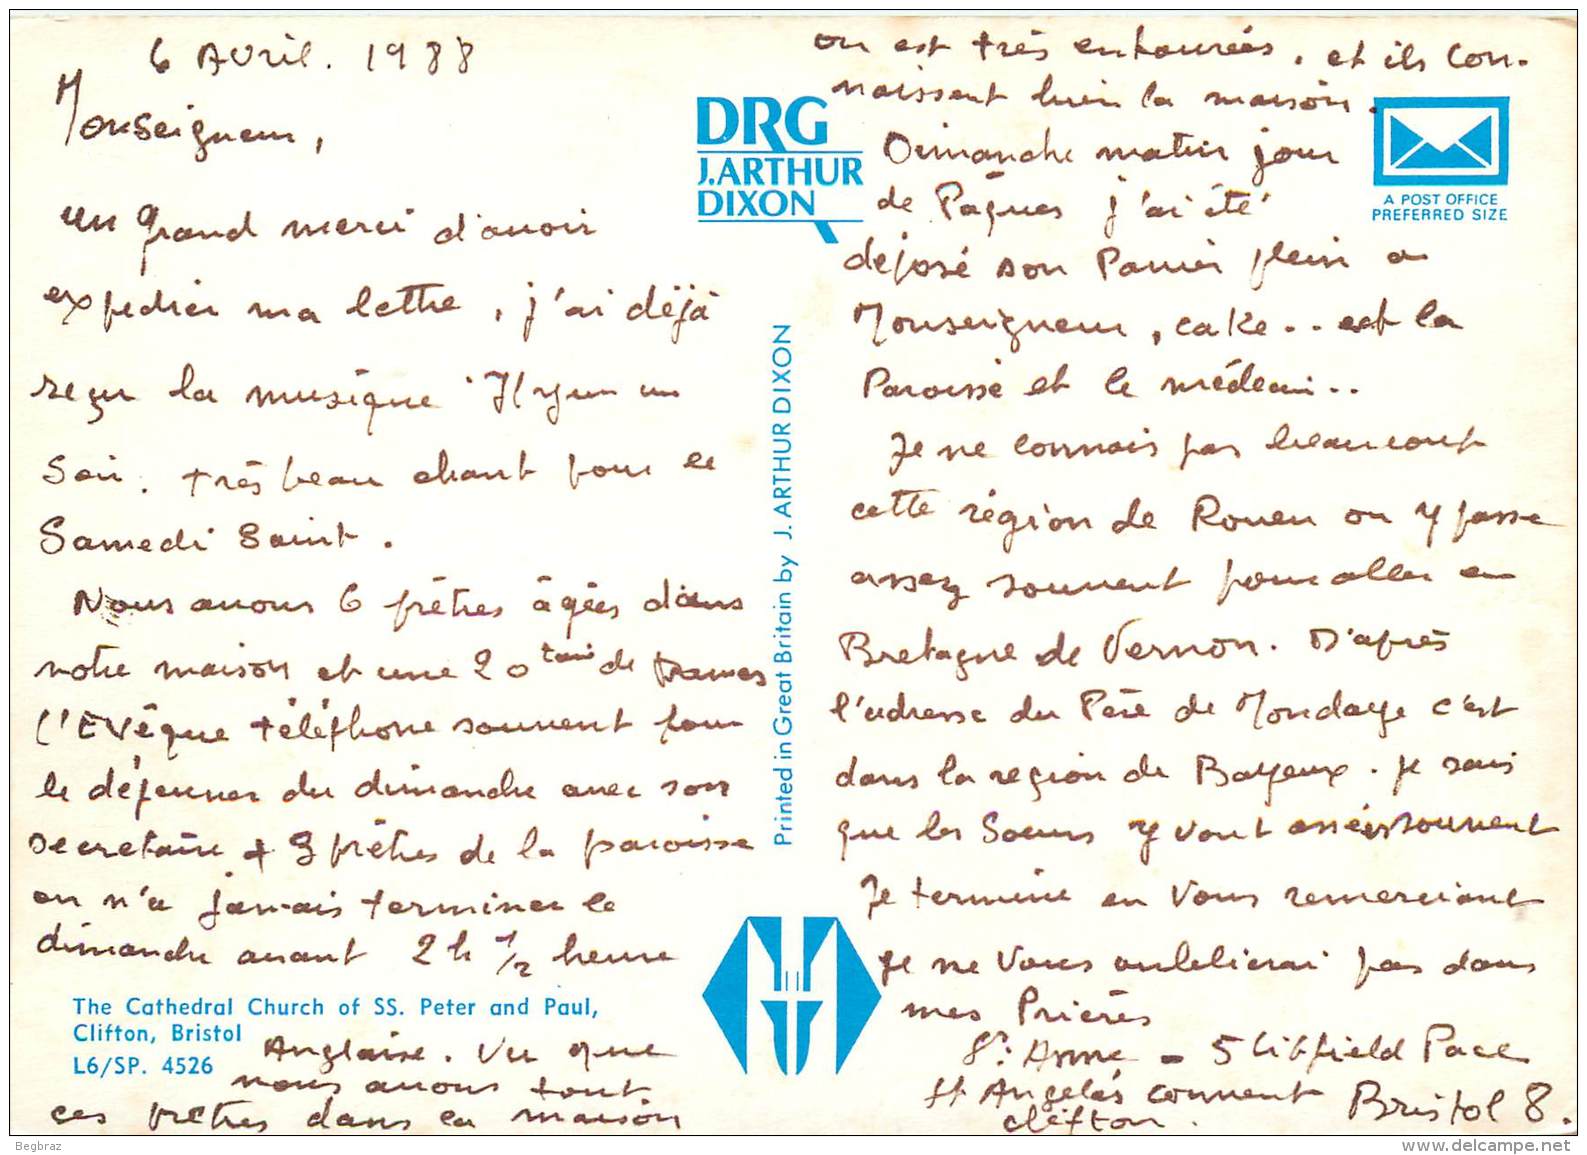 6 Avril. 1988
Monseigneur,
un grand merci d'avoir
expedier ma lettre, j'ai déjà
reçu la musique Il y un
Soir. très beau chant pour le
Samedi Saint.
Nous avons 6 prêtres âgées dans
notre maison et une 20taine de Dames
L'Evêque téléphone souvent pour
le déjeuner du dimanche avec son
secretaire + 3 prêtres de la paroisse
on n'a jamais terminer le
dimanche avant 2h 1/2 heure
The Cathedral Church of SS. Peter and Paul,
Clifton, Bristol
L6/SP. 4526
Anglaise. Vu que
nous avons tout
ces prêtres dans la maison
DRG
J.ARTHUR
DIXON
Printed in Great Britain by J. ARTHUR DIXON
A POST OFFICE
PREFERRED SIZE
on est très entourées. et ils con-
naissent bien la maison.
Dimanche matin jour
de Pâques j'ai été
déposé son Panier plein a
Monseigneur, cake.. est la
Paroisse et le médecin..
Je ne connais pas beaucoup
cette région de Rouen on y passe
assez souvent pour aller en
Bretagne de Vernon. D'après
l'adresse du Père de Mondaye c'est
dans la region de Bayeux. je sais
que les Soeurs y vont assez souvent
Je termine en Vous remerciant
je ne Vous oublierai pas dans
mes Prières
Sr. Anne - 5 Litfield Pace
St Angelas convent Bristol 8.
Clifton.
Begbraz
www.delcampe.net